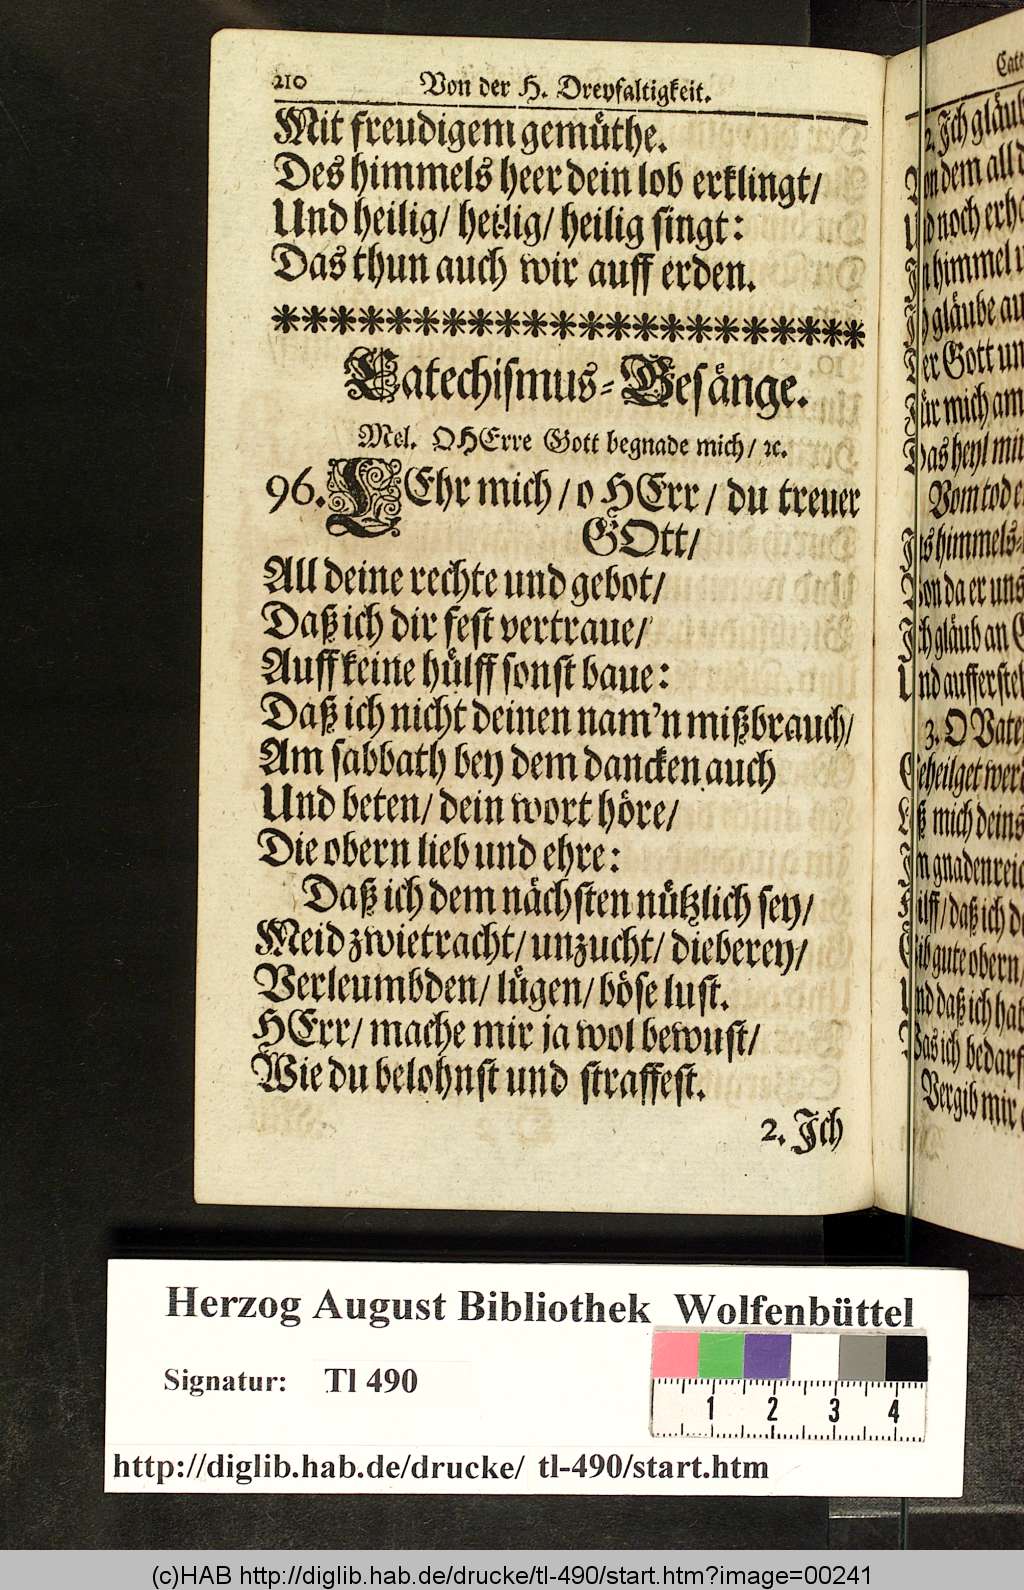 210 Von der H. Dreyfaltigkeit.
Mit freudigem gemüthe.
Des himmels heer dein lob erklingt/
Und heilig/ heilig/ heilig singt:
Das thun auch wir auff erden.
************************
Catechismus-Gesänge.
Mel. O HErre Gott begnade mich/ ꝛc.
96. LEhr mich/ o HErr/ du treuer
GOtt/
All deine rechte und gebot/
Daß ich dir fest vertraue/
Auff keine hülff sonst baue:
Daß ich nicht deinen nam'n mißbrauch/
Am sabbath bey dem dancken auch
Und beten/ dein wort höre/
Die obern lieb und ehre:
Daß ich dem nächsten nützlich sey/
Meid zwietracht/ unzucht/ dieberey/
Verleumbden/ lügen/ böse lust.
HErr/ mache mir ja wol bewust/
Wie du belohnst und straffest.
2. Jch
2. Jch
dem all
noch
himmel
gläube
Gott
mich am
heyl mit
Vom tod
himmels-
da er uns
gläub an
3. O
mich
gnadenreic
daß ich
gute obern/
daß ich
ich bedarf
Vergib mir
Herzog August Bibliothek Wolfenbüttel
Signatur: Tl 490
1 2 3 4
http://diglib.hab.de/drucke/ tl-490/start.htm
(c)HAB http://diglib.hab.de/drucke/tl-490/start.htm?image=00241